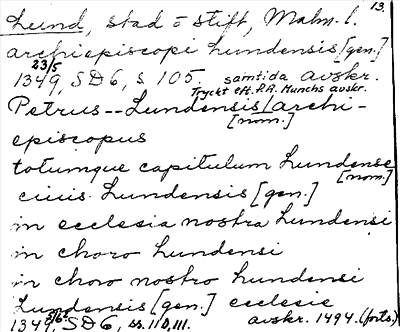 13.
Lund, stad o stift, Malm. l.
archiepiscopi Lundensis [gen.]
23/5
1349, SD6, s 105. samtida avskr.
Tryckt eft. P.A. Munchs avskr.
Petrus -- Lundensis archi-
[nom.]
episcopus
totumque capitulum Lundense
[nom.]
ciuis Lundensis [gen.]
in ecclesia nostra Lundensi
in choro Lundensi
in choro nostro Lundensi
Lundensis [gen.] ecclesie
1349, SD6, ss. 110, 111. avskr. 1494. (forts)